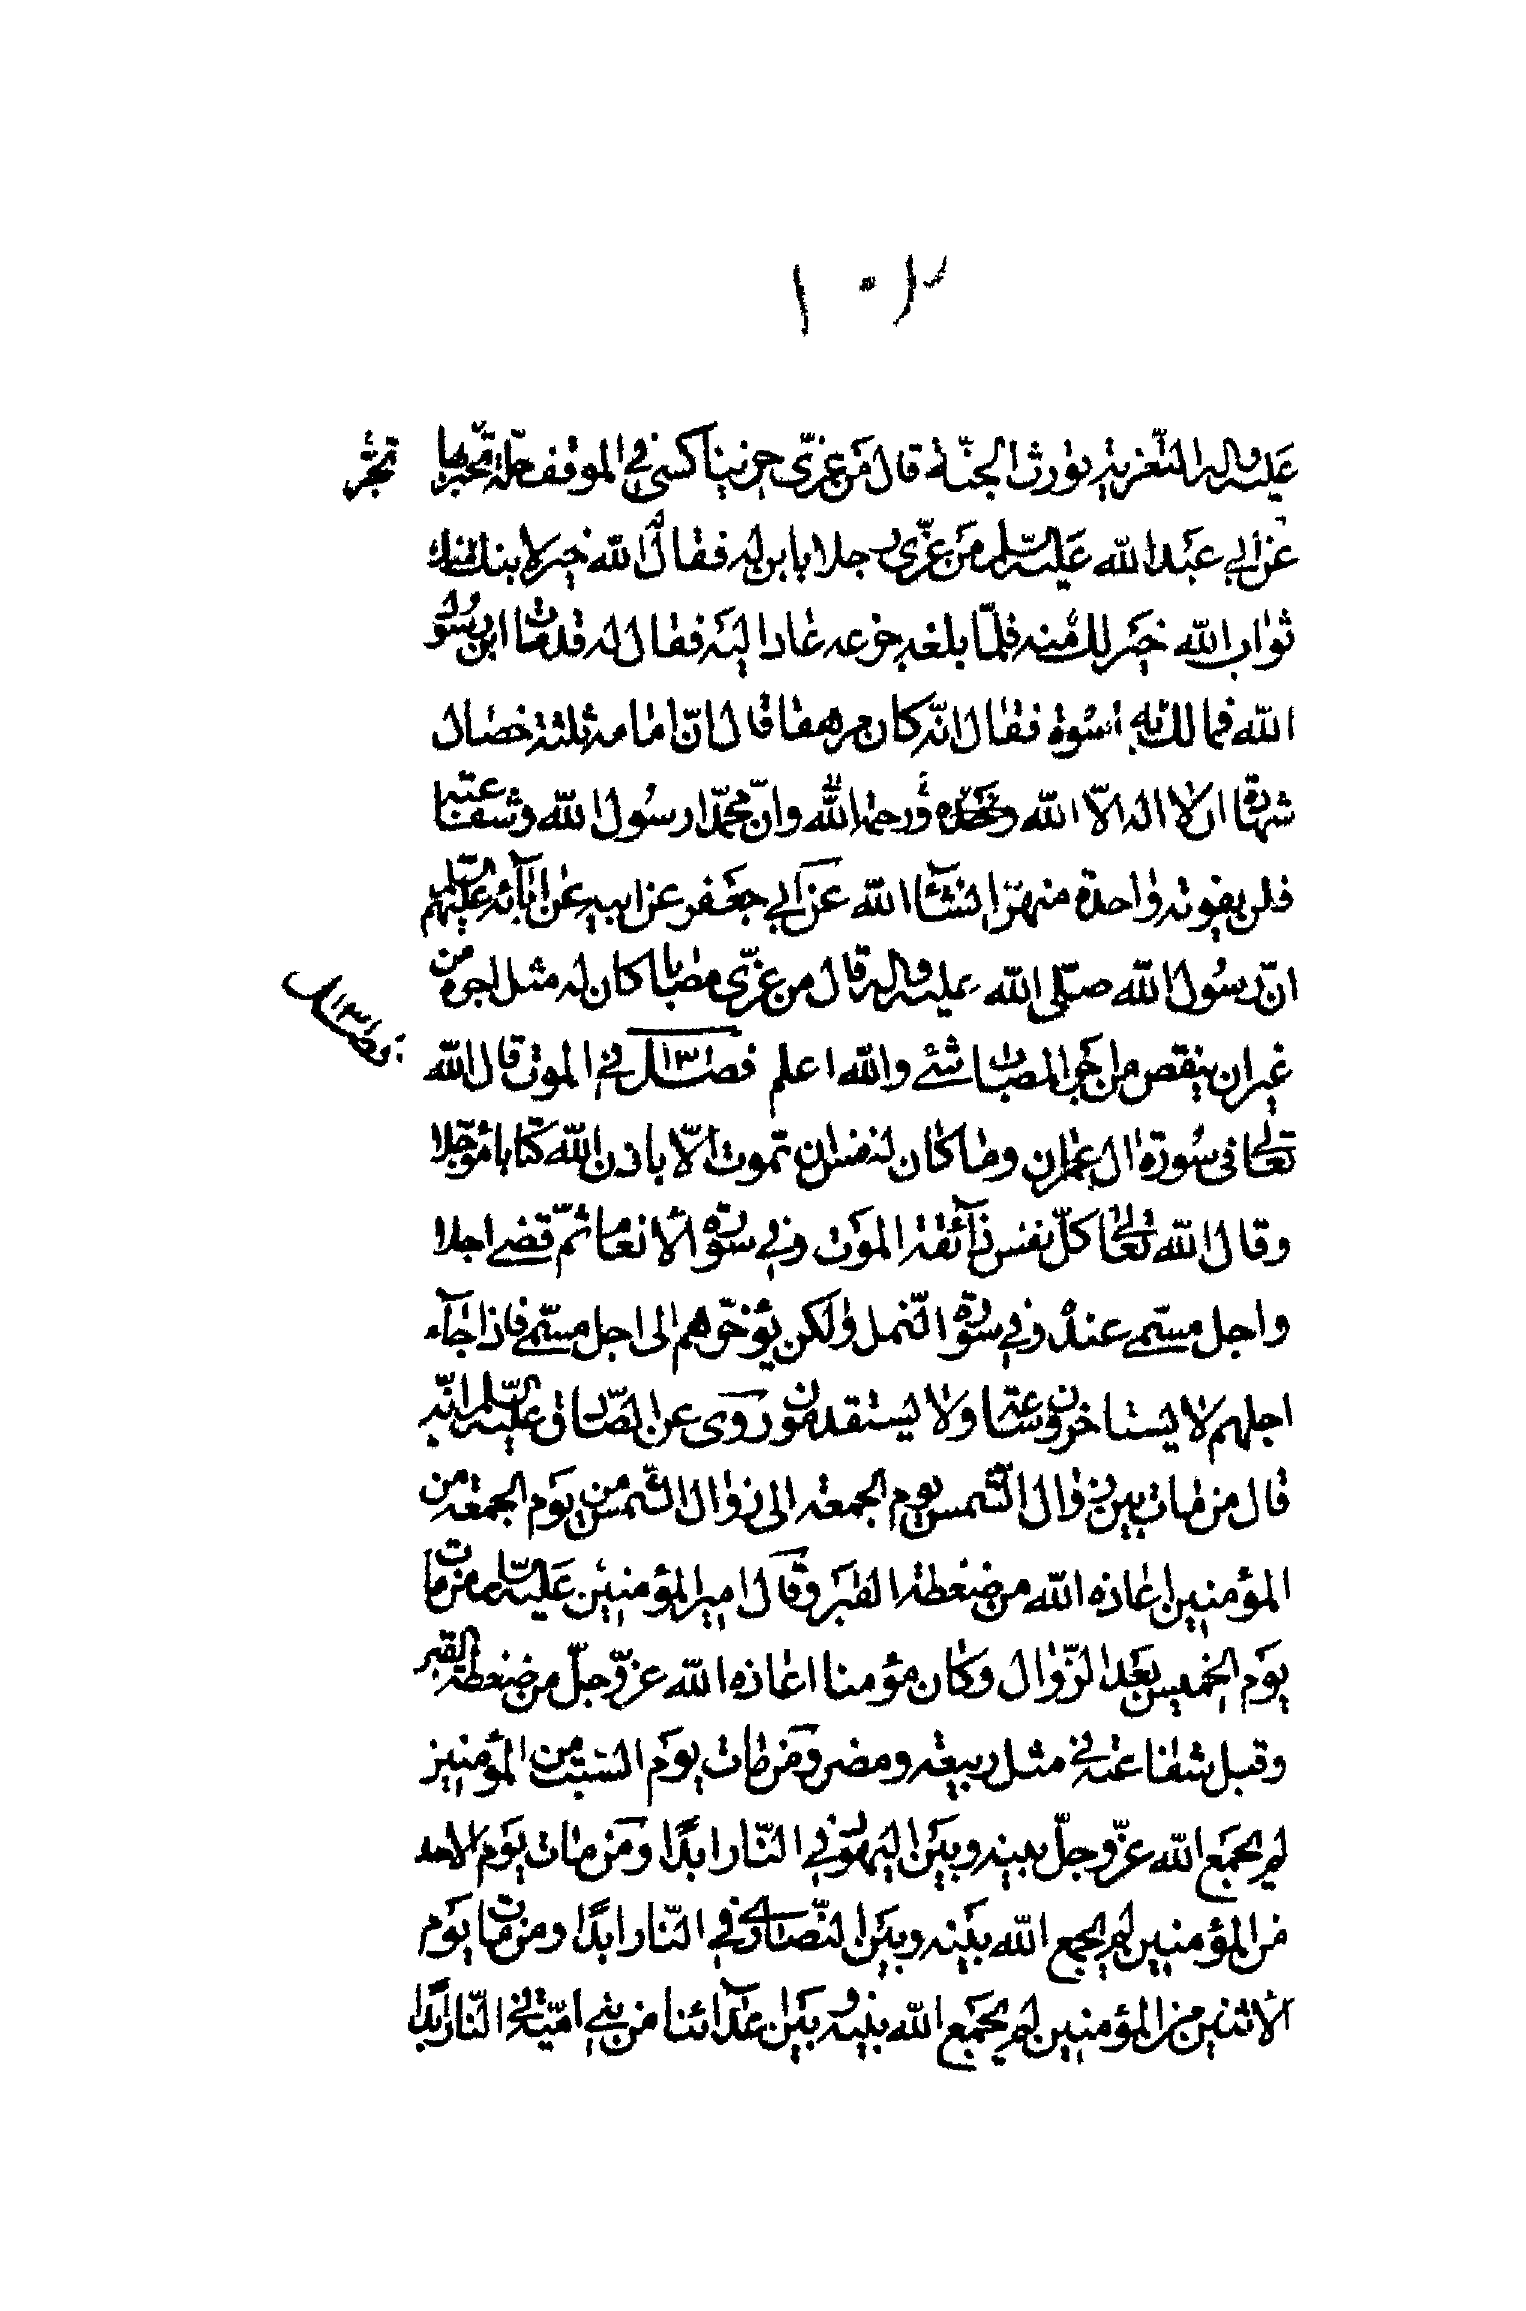 ١٠٢
عليه واله التعزية يورث الجنة قال من عزّى حزينا كسى في الموقف حلة يحبر بها
عن ابي عبد الله عليه السلم من عزّى رجلا بابن له فقال الله خير لابنك منك
ثواب الله خير لك منه فلمّا بلغه جزعه عاد اليه فقال له قد مات ابن رسول
الله فما لك به اسوة فقال انّه كان مرهقا قال انّ امامه ثلثة خصال
شهادة ان لا اله الّا الله ورحمة الله وانّ محمّدا رسول الله وشفاعته
فلن يفوته واحدة منهنّ انشآء الله عن ابي جعفر عن ابيه عن ابآئه عليهم السلم
انّ رسول الله صلّى الله عليه واله قال من عزّى مصابا كان له مثل اجره من
غير ان ينقص من اجر المصاب شئ والله اعلم فصل ١٣١ في الموت قال الله
تعالى في سورة ال عمران وما كان لنفس ان تموت الّا باذن الله كتابا مؤجّلا
وقال الله تعالى كلّ نفس ذآئقة الموت وفي سورة الانعام ثمّ قضى اجلا
واجل مسمّى عنده وفي سورة النّحل ولكن يؤخّرهم الى اجل مسمّى فاذا جآء
اجلهم لا يستاخرون ساعة ولا يستقدمون روى عن الصّادق عليه السّلم انّه
قال من مات بين زوال الشّمس يوم الجمعة الى زوال الشّمس من يوم الجمعة من
المؤمنين اعاذه الله من ضغطة القبر وقال امير المؤمنين عليه السّلم من مات
يوم الخميس بعد الزّوال وكان مؤمنا اعاذه الله عزّ وجلّ من ضغطة القبر
وقبل شفاعته في مثل ربيعه ومضر ومن مات يوم السّبت من المؤمنين
لم يجمع الله عزّ وجلّ بينه وبين اليهود في النّار ابدًا ومن مات يوم الاحد
من المؤمنين لم يجمع الله بينه وبين النّصارى في النّار ابدًا ومن مات يوم
الاثنين من المؤمنين لم يجمع الله بينه وبين اعدآئنا من بني اميّة في النّار ابدًا
فصل ١٣١